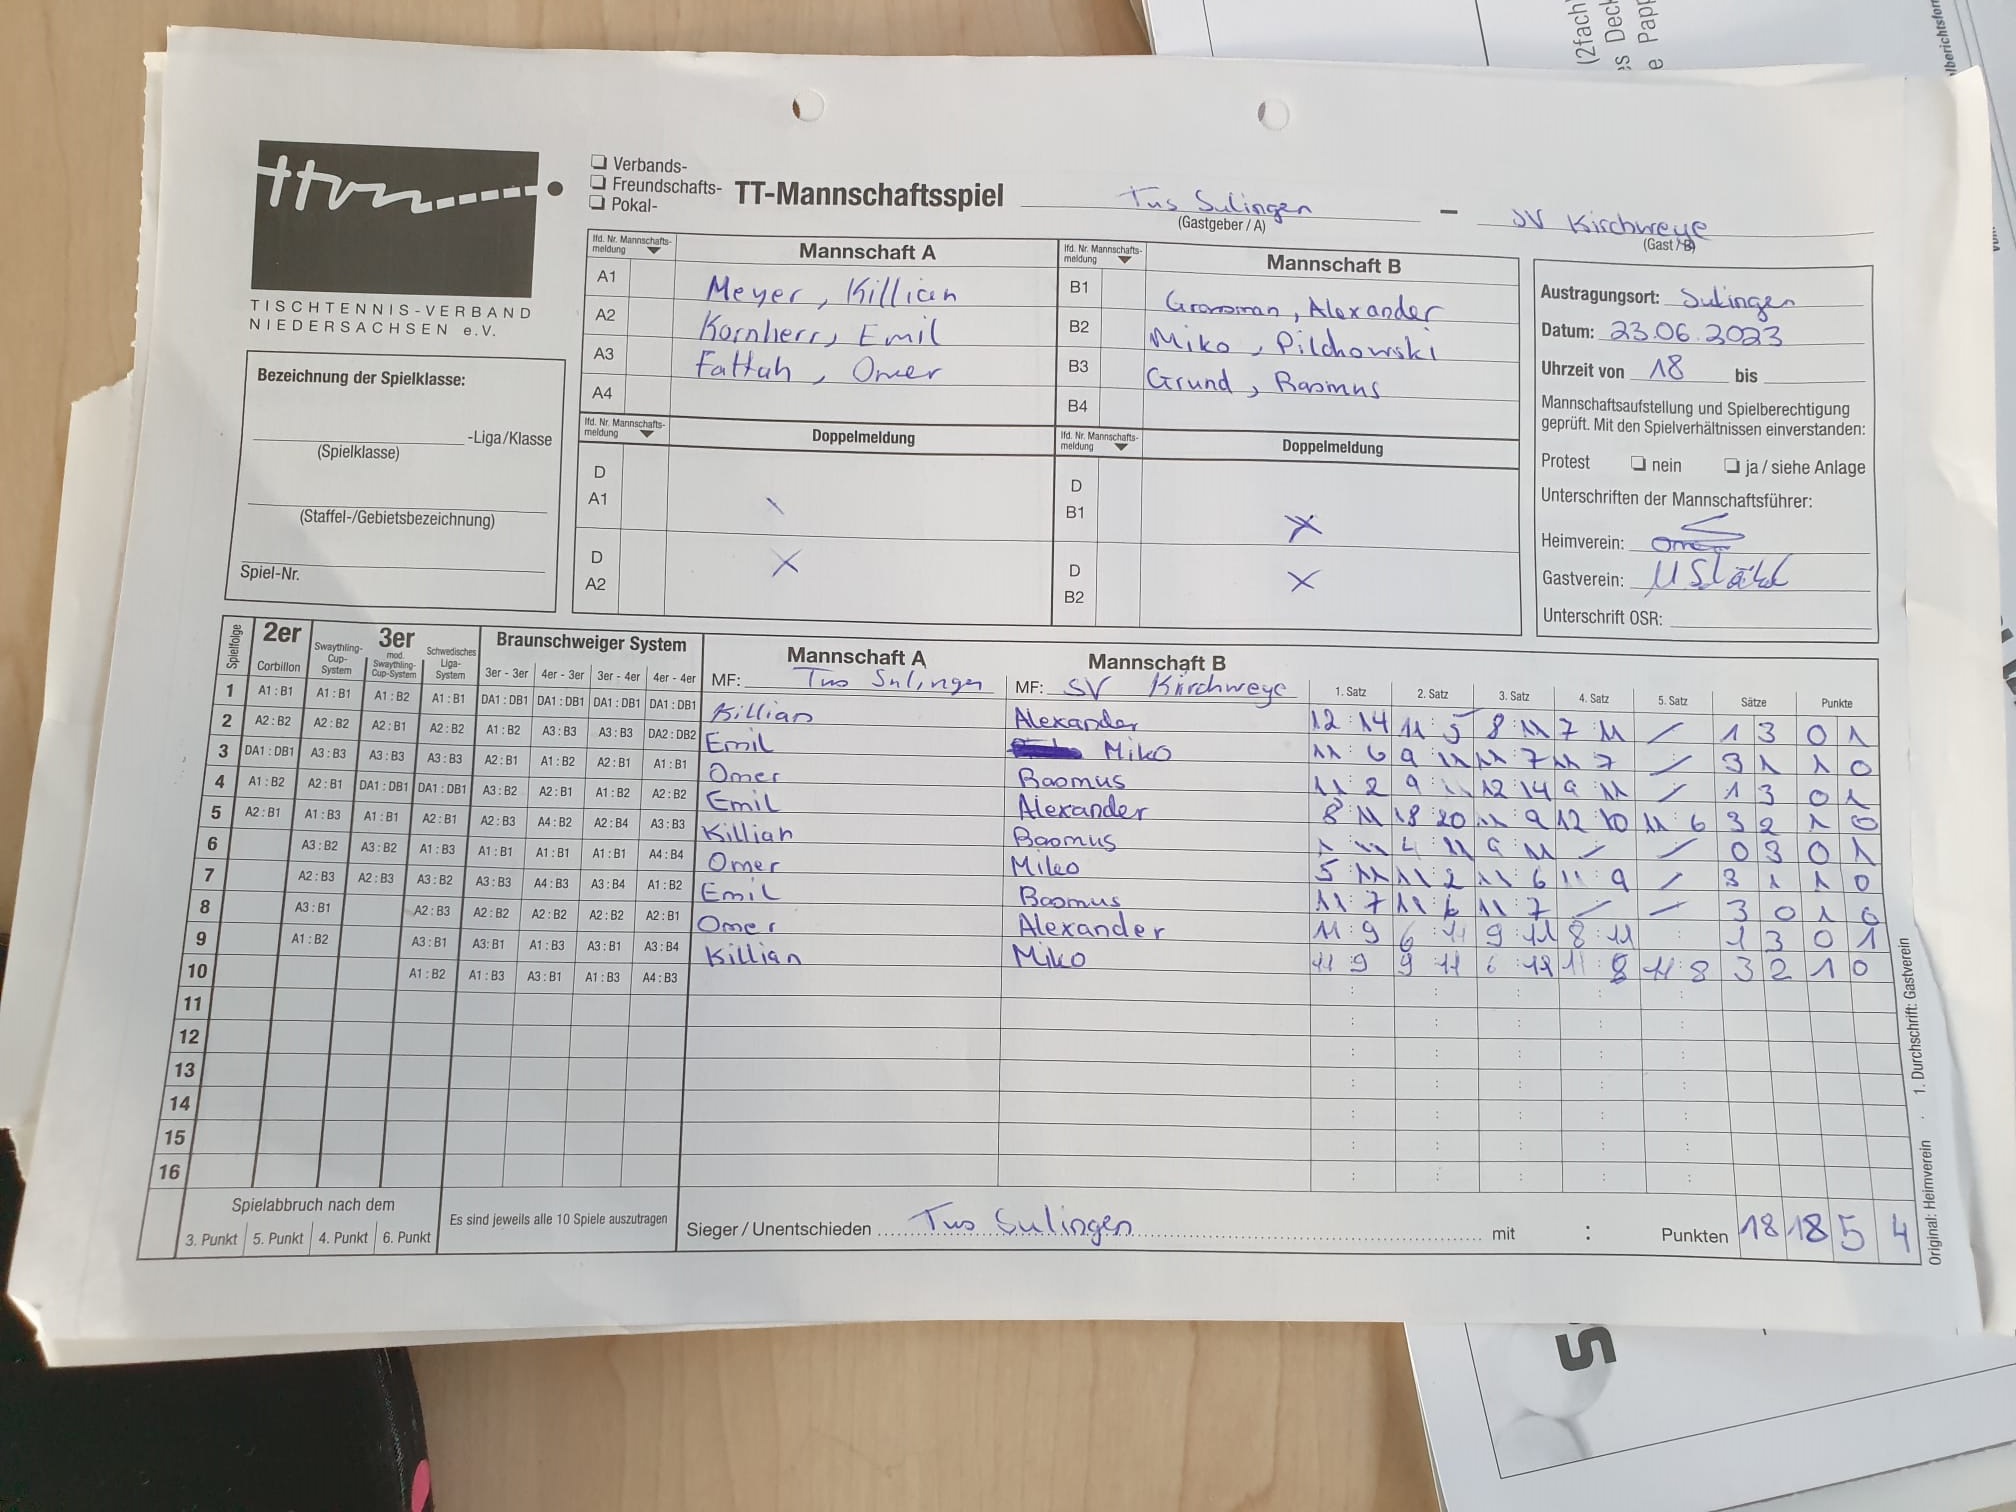 (2fach
s Deck
e Papp
lberichtsfor
ttvn
TISCHTENNIS-VERBAND
NIEDERSACHSEN e.V.
❏ Verbands-
❏ Freundschafts- TT-Mannschaftsspiel Tus Sulingen – SV Kirchweye
❏ Pokal-
(Gastgeber / A) (Gast / B)
lfd. Nr. Mannschafts-meldung Mannschaft A lfd. Nr. Mannschafts-meldung Mannschaft B
A1 Meyer, Killian B1 Alexander
A2 Kornherr, Emil B2 Miko, Pilchowski
A3 Fattah, Omer B3 Grund, Rasmus
A4 B4
lfd. Nr. Mannschafts-meldung Doppelmeldung lfd. Nr. Mannschafts-meldung Doppelmeldung
D A1 D B1 X
D A2 X D B2 X
Bezeichnung der Spielklasse:
-Liga/Klasse
(Spielklasse)
(Staffel-/Gebietsbezeichnung)
Spiel-Nr.
Austragungsort: Sulingen
Datum: 23.06.2023
Uhrzeit von 18 bis
Mannschaftsaufstellung und Spielberechtigung
geprüft. Mit den Spielverhältnissen einverstanden:
Protest ❏ nein ❏ ja / siehe Anlage
Unterschriften der Mannschaftsführer:
Heimverein:
Gastverein:
Unterschrift OSR:
Spielfolge 2er 3er Braunschweiger System Mannschaft A Mannschaft B
Corbillon Swaythling-Cup-System mod. Swaythling-Cup-System Schwedisches Liga-System 3er - 3er 4er - 3er 3er - 4er 4er - 4er MF: Tus Sulingen MF: SV Kirchweye 1. Satz 2. Satz 3. Satz 4. Satz 5. Satz Sätze Punkte
1 A1 : B1 A1 : B1 A1 : B2 A1 : B1 DA1 : DB1 DA1 : DB1 DA1 : DB1 DA1 : DB1 Killian Alexander 12 : 14 11 : 5 8 : 11 7 : 11 / 1 3 0 1
2 A2 : B2 A2 : B2 A2 : B1 A2 : B2 A1 : B2 A3 : B3 A3 : B3 DA2 : DB2 Emil Miko 11 : 6 9 : 11 11 : 7 11 : 7 / 3 1 1 0
3 DA1 : DB1 A3 : B3 A3 : B3 A3 : B3 A2 : B1 A1 : B2 A2 : B1 A1 : B1 Omer Rasmus 11 : 2 9 : 11 12 : 14 9 : 11 / 1 3 0 1
4 A1 : B2 A2 : B1 DA1 : DB1 DA1 : DB1 A3 : B2 A2 : B1 A1 : B2 A2 : B2 Emil Alexander 8 : 11 18 : 20 11 : 9 12 : 10 11 : 6 3 2 1 0
5 A2 : B1 A1 : B3 A1 : B1 A2 : B1 A2 : B3 A4 : B2 A2 : B4 A3 : B3 Killian Rasmus 4 : 11 9 : 11 / / 0 3 0 1
6 A3 : B2 A3 : B2 A1 : B3 A1 : B1 A1 : B1 A1 : B1 A4 : B4 Omer Miko 5 : 11 11 : 2 11 : 6 11 : 9 / 3 1 1 0
7 A2 : B3 A2 : B3 A3 : B2 A3 : B3 A4 : B3 A3 : B4 A1 : B2 Emil Rasmus 11 : 7 11 : 6 11 : 7 / / 3 0 1 0
8 A3 : B1 A2 : B3 A2 : B2 A2 : B2 A2 : B2 A2 : B1 Omer Alexander 11 : 9 6 : 11 9 : 11 8 : 11 : 1 3 0 1
9 A1 : B2 A3 : B1 A3 : B1 A1 : B3 A3 : B1 A3 : B4 Killian Miko 11 : 9 9 : 11 11 : 8 11 : 8 3 2 1 0
10 A1 : B2 A1 : B3 A3 : B1 A1 : B3 A4 : B3 : : : : :
11 : : : : :
12 : : : : :
13 : : : : :
14 : : : : :
15 : : : : :
16 : : : : :
Spielabbruch nach dem
3. Punkt 5. Punkt 4. Punkt 6. Punkt
Es sind jeweils alle 10 Spiele auszutragen
Sieger / Unentschieden Tus Sulingen mit : Punkten 18 18 5 4
Original: Heimverein · 1. Durchschrift: Gastverein